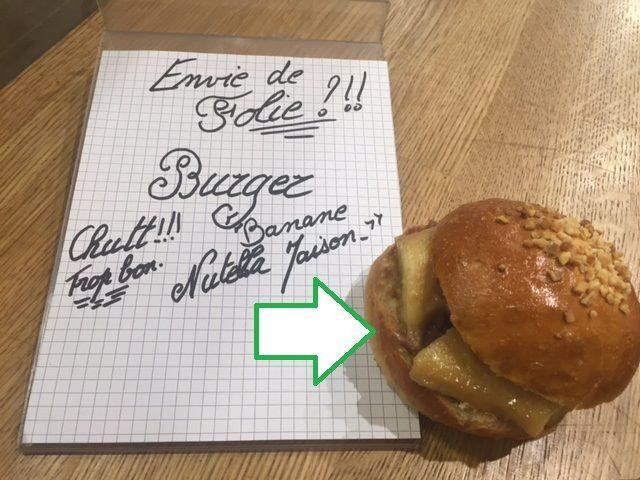 Envie de
Folie?!!
Burger
"Banane
Nutella Maison"
Chutt!!!
Trop bon.